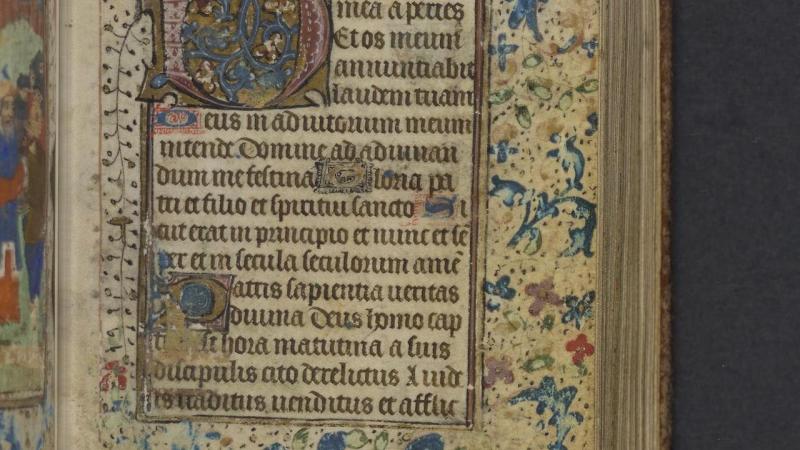 mea aperies
Et os meum
annuntiabit
laudem tuam
Deus in adiutorium meum
intende Domine ad adiuuan
dum me festina Gloria pa
tri et filio et spiritui sancto Si
cut erat in principio et nunc et sē
per et in secula seculorum amē
Patris sapientia ueritas
diuina Deus homo cap
hora matutina a suis
discipulis cito derelictus A iude
is traditus uenditus et afflic